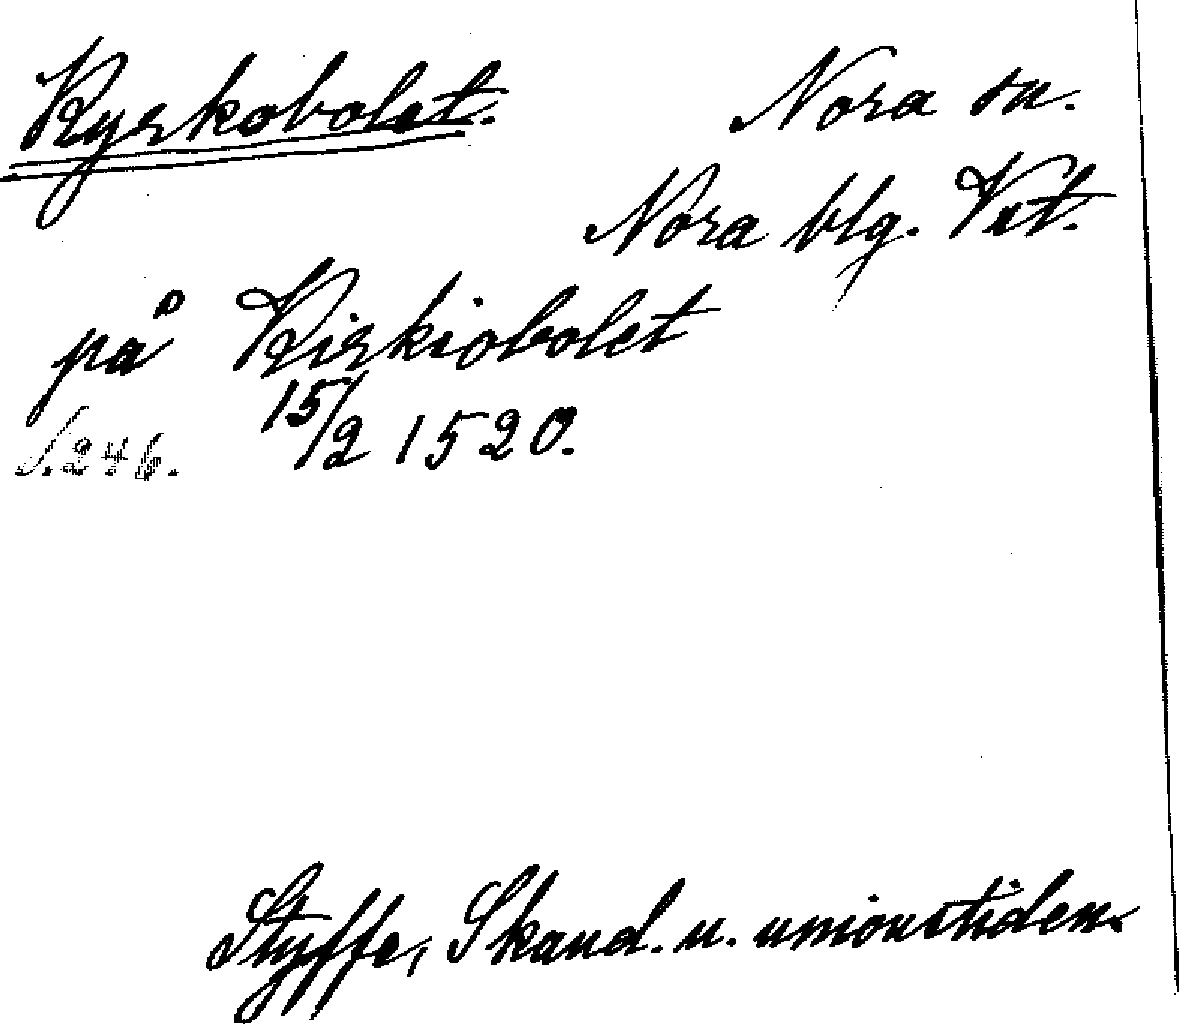 Kyrkobolet. Nora sn.
Nora blg. Vst.
på Kirkiobolet
S. 246. 15/2 1520.
Styffe, Skand. u. unionstiden.